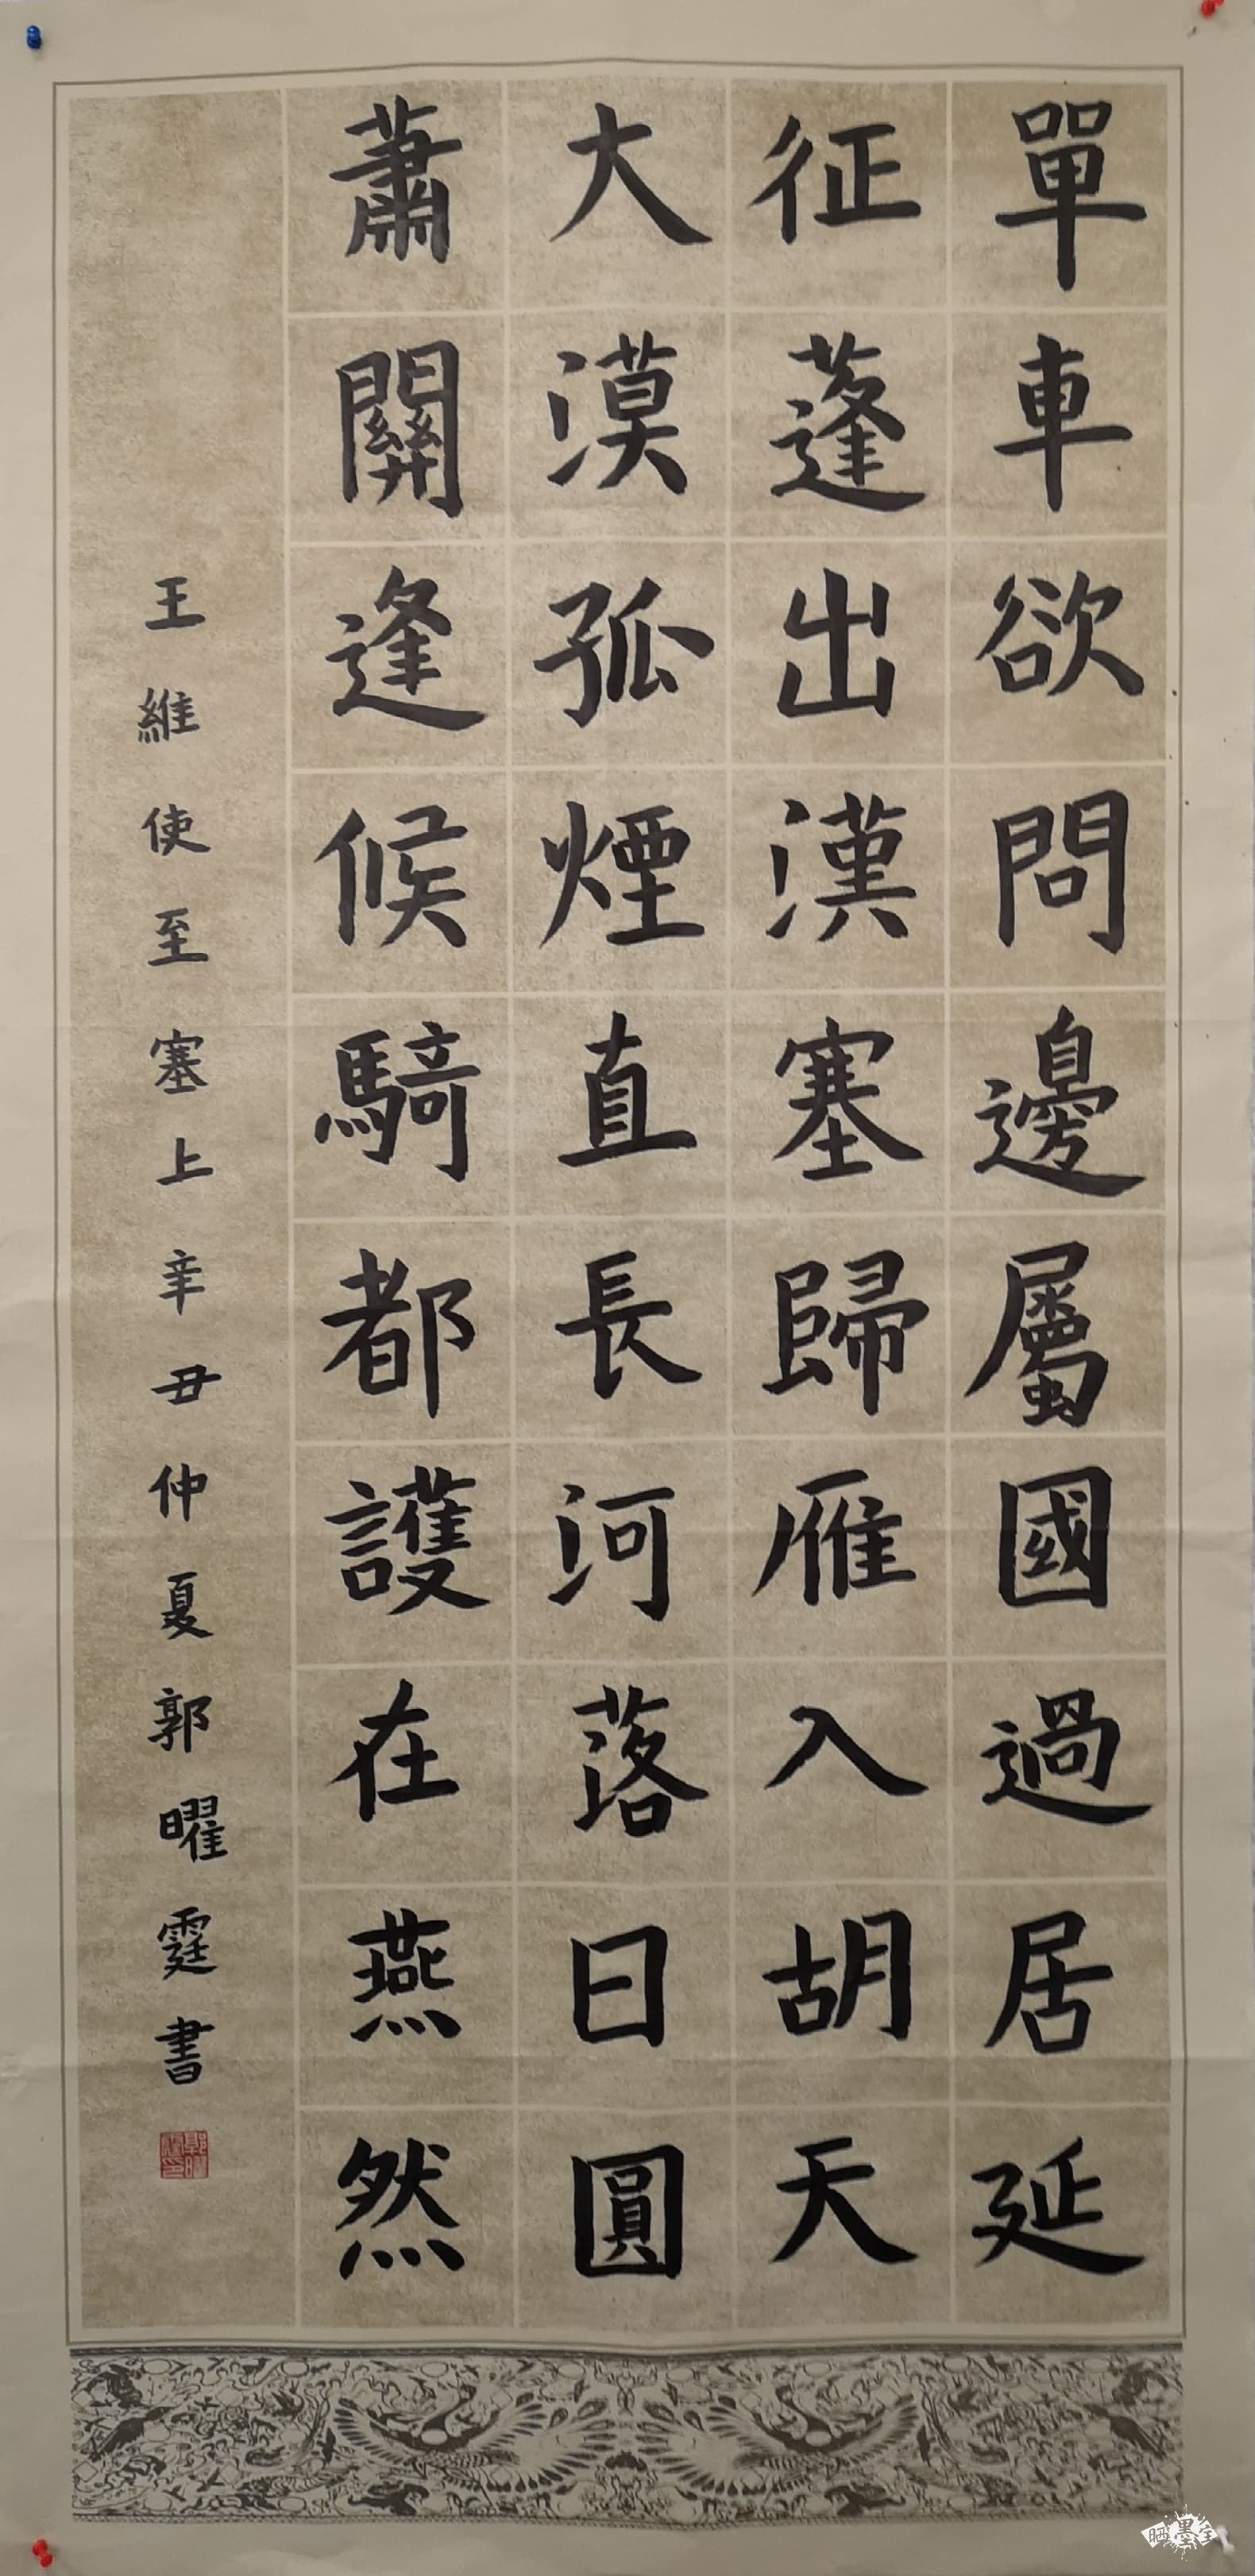 單車欲問邊屬國過居延
征蓬出漢塞歸雁入胡天
大漠孤煙直長河落日圓
蕭關逢候騎都護在燕然
王維使至塞上辛丑仲夏郭曜霆書